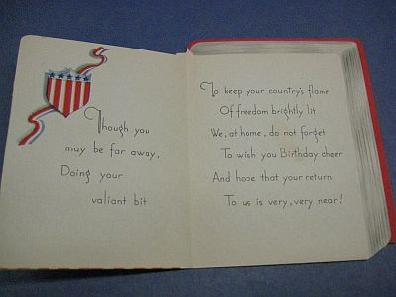 Though you
may be far away,
Doing your
valiant bit
To keep your country's flame
Of freedom brightly lit
We, at home, do not forget
To wish you Birthday cheer
And hope that your return
To us is very, very near!